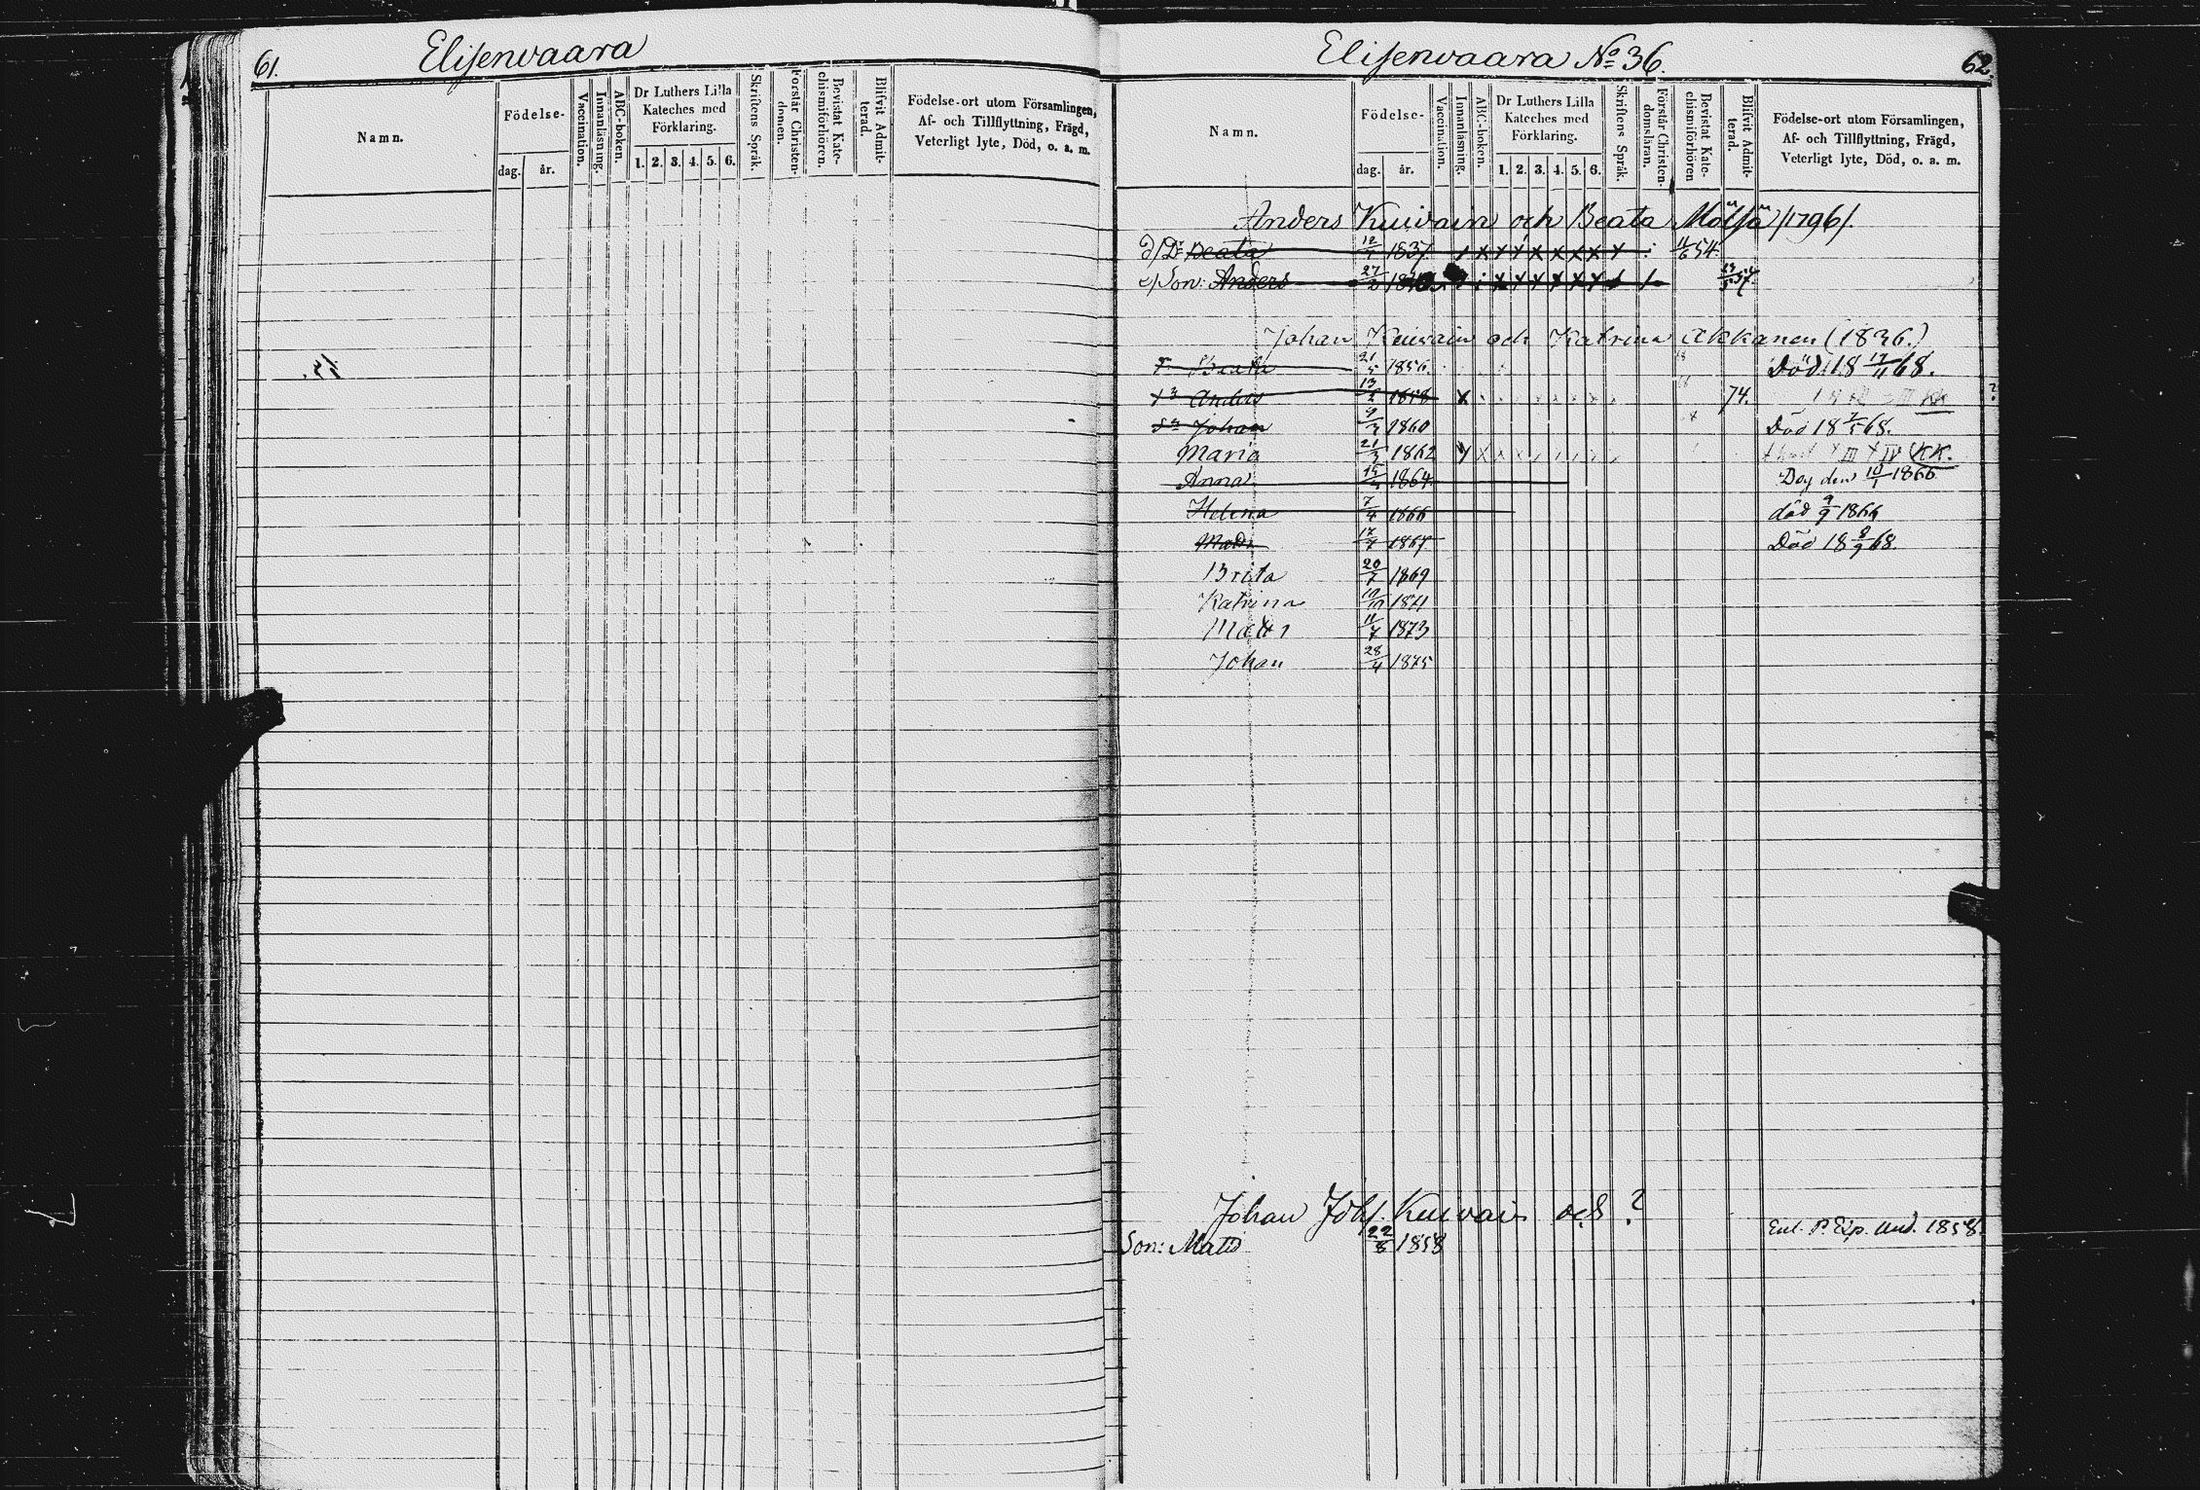 61.
Elisenvaara
Namn.
Födelse-
dag.
år.
Vaccination.
Innanläsning.
ABC-boken.
Dr Luthers Lilla
Kateches med
Förklaring.
1. 2. 3. 4. 5. 6.
Skriftens Språk.
Förstår Christen-
domen.
Bevistat Kate-
chismiförhören.
Blifvit Admit-
terad.
Födelse-ort utom Församlingen,
Af- och Tillflyttning, Frägd,
Veterligt lyte, Död, o. a. m.
Elisenvaara No 36.
62.
Namn.
Födelse-
dag.
år.
Vaccination.
Innanläsning.
ABC-boken.
Dr Luthers Lilla
Kateches med
Förklaring.
1. 2. 3. 4. 5. 6.
Skriftens Språk.
Förstår Christen-
domsläran.
Bevistat Kate-
chismiförhören
Blifvit Admit-
terad.
Födelse-ort utom Församlingen,
Af- och Tillflyttning, Frägd,
Veterligt lyte, Död, o. a. m.
Anders Kuivain och Beata Mötsä /1796/.
d/ Dr Beata 1837 11/6 54.
e/ Son: Anders 27/2
Johan Kuivain och Katrina Akkanen (1836.)
Beata 21/5 1856. Död 18 17/11 68.
Anders 13/2 1858 x 74.
Johan 9/3 1860 Död 18 7/5 68.
Maria 21/3 1862 KK.
Anna 1864. Dog den 10/1 1866
Helena 7/4 1866 död 9/9 1866
Matts 17/7 1867 Död 18 8/9 68.
Brita 20/7 1869
Katrina 10/10 1871
Matts 11/7 1873
Johan 28/4 1875
Johan Johs. Kuivain och ?
Son: Matts 22/8 1858 Enl. P. Exp. Und. 1858.